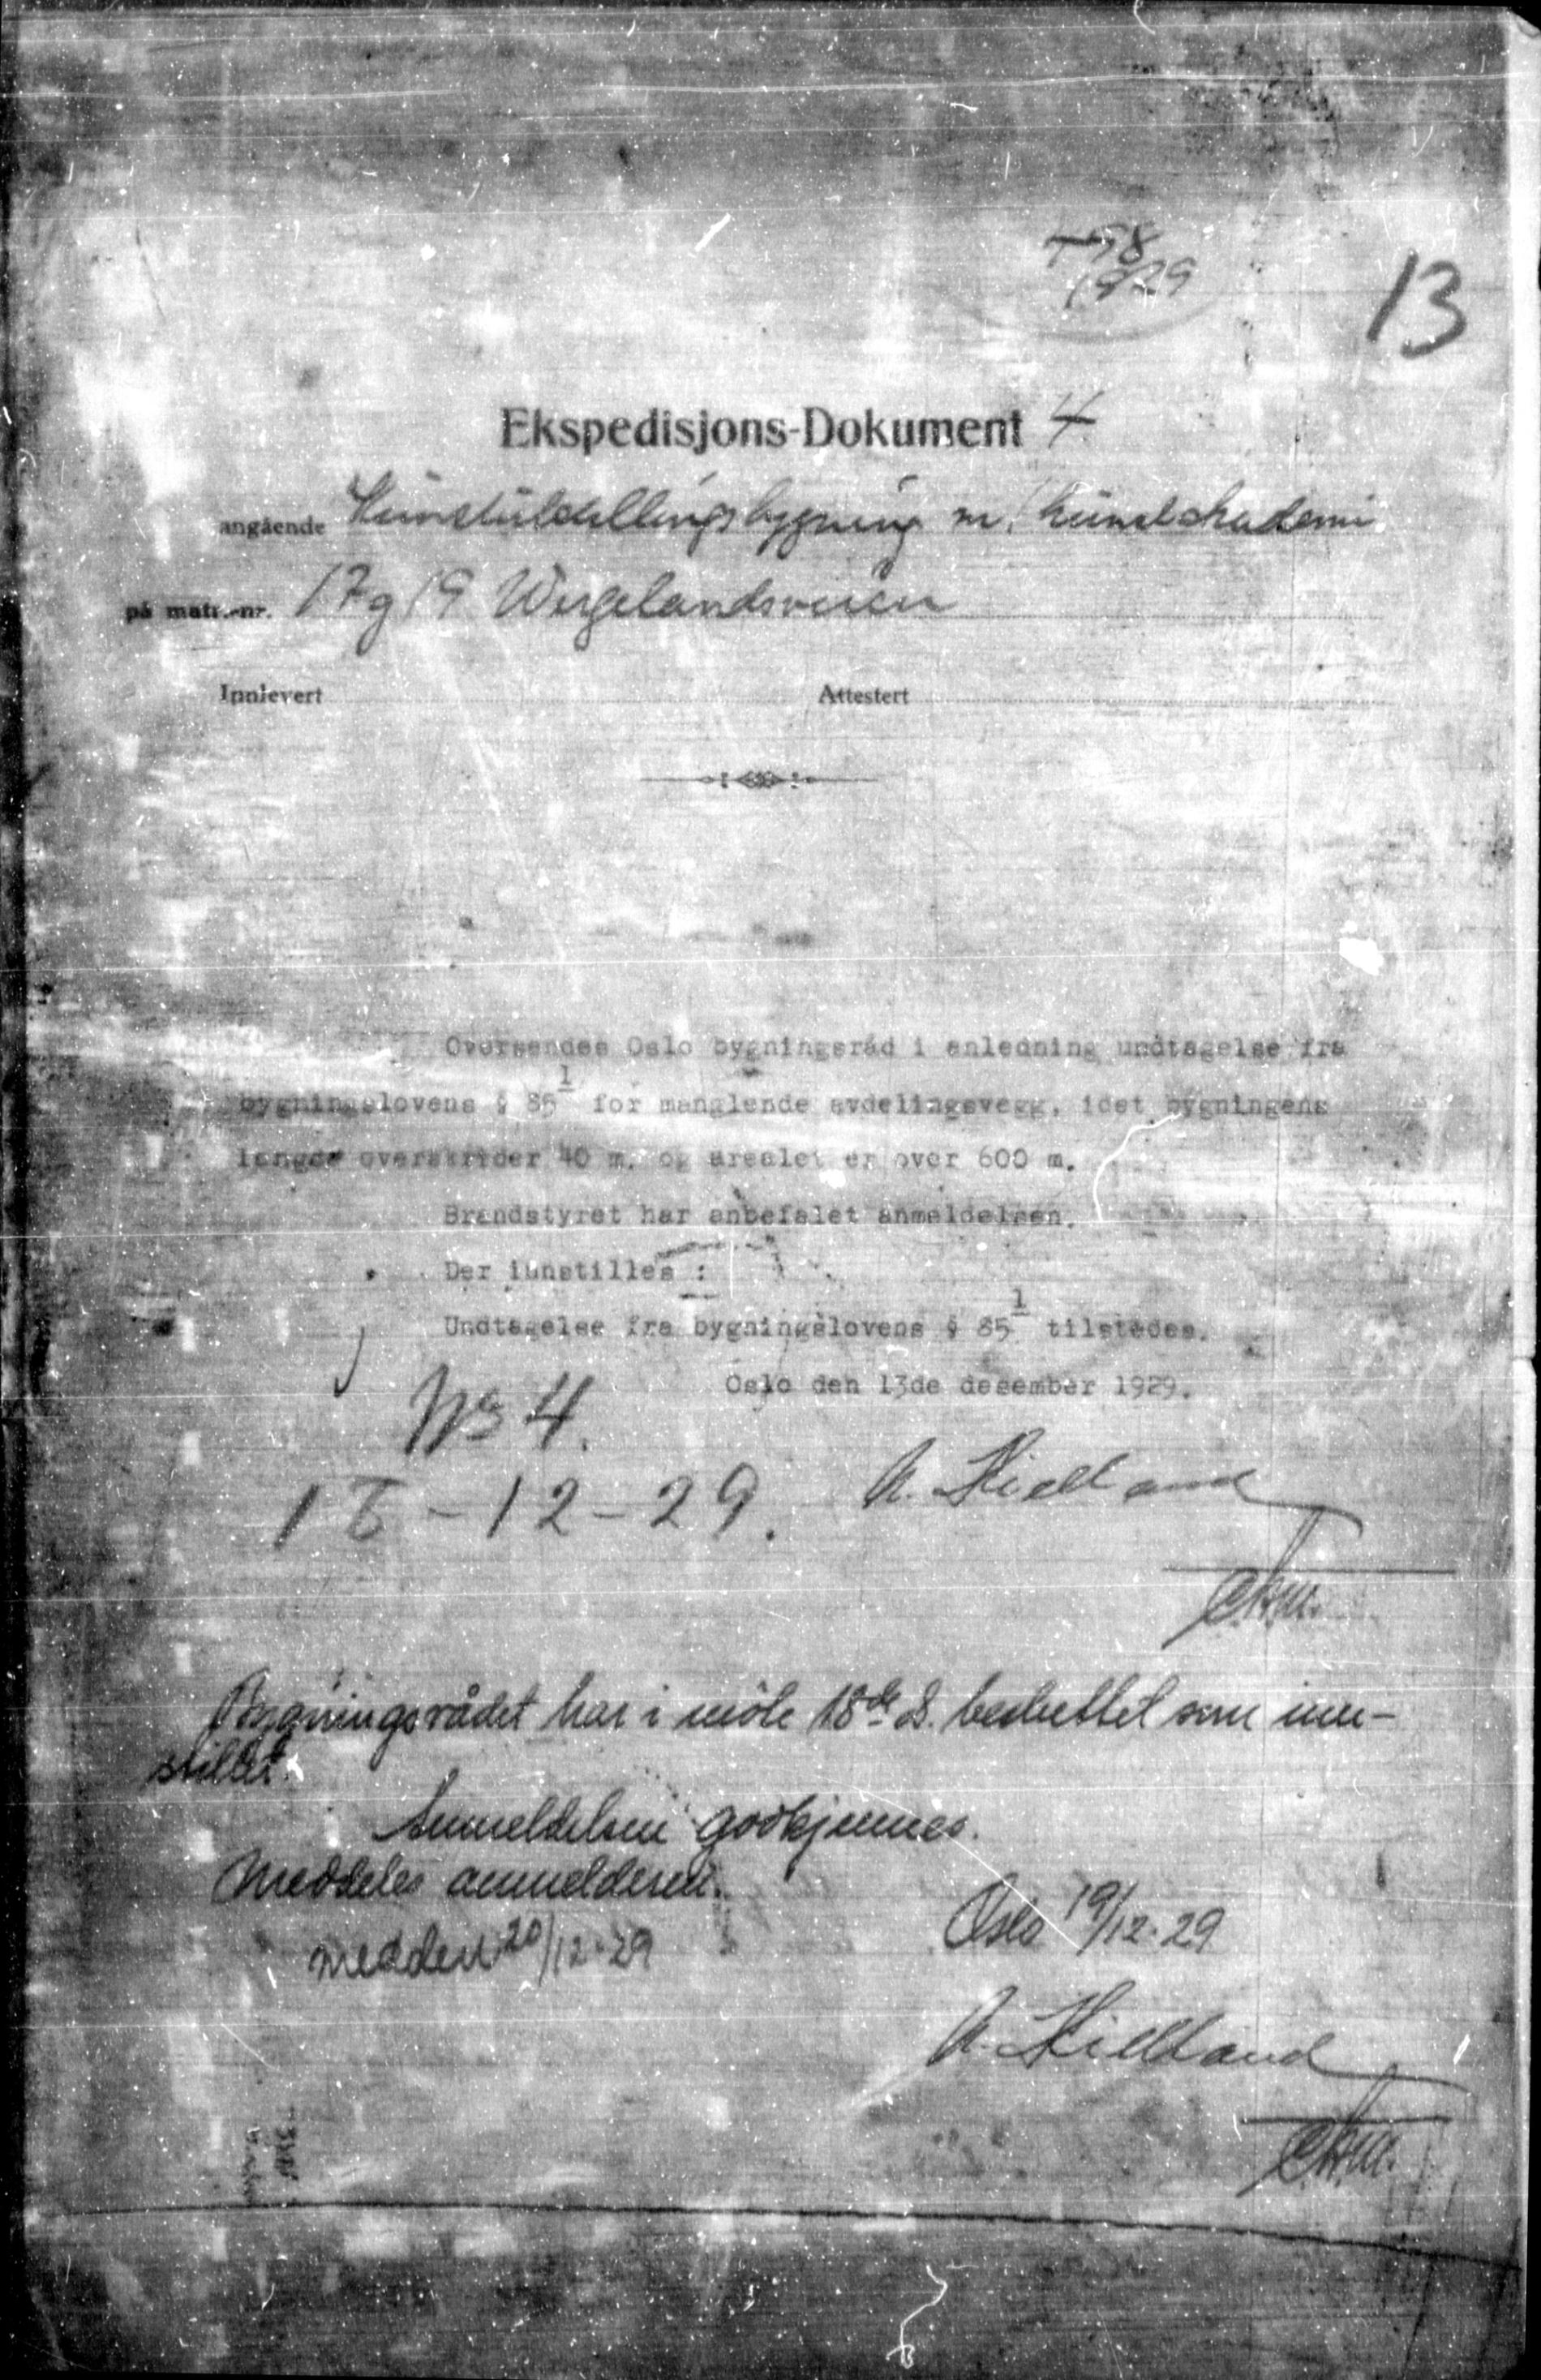 1929
13
Ekspedisjons-Dokument 4
angående Kunstutstillingsbygning m. kunstakademi
på matr.-nr. 17 og 19 Wergelandsveien
Innlevert Attestert
Oversendes Oslo bygningsråd i anledning undtagelse fra
bygningslovens § 85 1 for manglende avdelingsvegg, idet bygningens
lengde overskrider 40 m. og arealet er over 600 m.
Brandstyret har anbefalet anmeldelsen.
Der innstilles :
Undtagelse fra bygningslovens § 85 1 tilstedes.
Oslo den 13de desember 1929.
No 4.
18-12-29.
A. Kielland
Bygningsrådet har i møte 18de ds. besluttet som inn-
stillet.
Anmeldelsen godkjennes.
Meddeles anmelderen.
Oslo 19/12-29
meddelt 20/12-29
A. Kielland